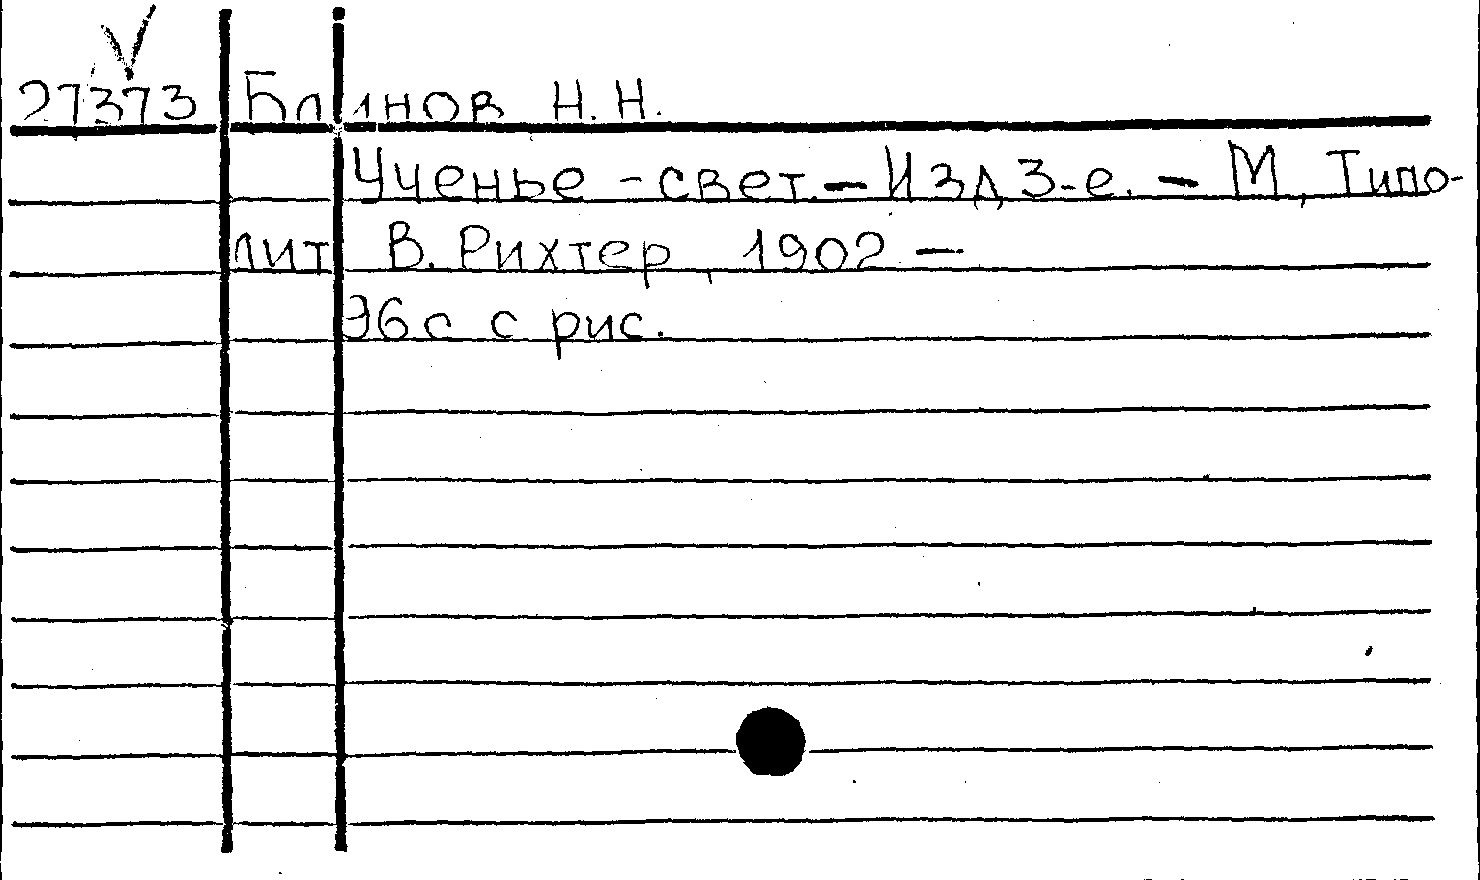 V
27373 Блинов Н. Н.
Ученье - свет. - Изд 3-е. - М, Типо-
лит В. Рихтер, 1902 -
96 с с рис.